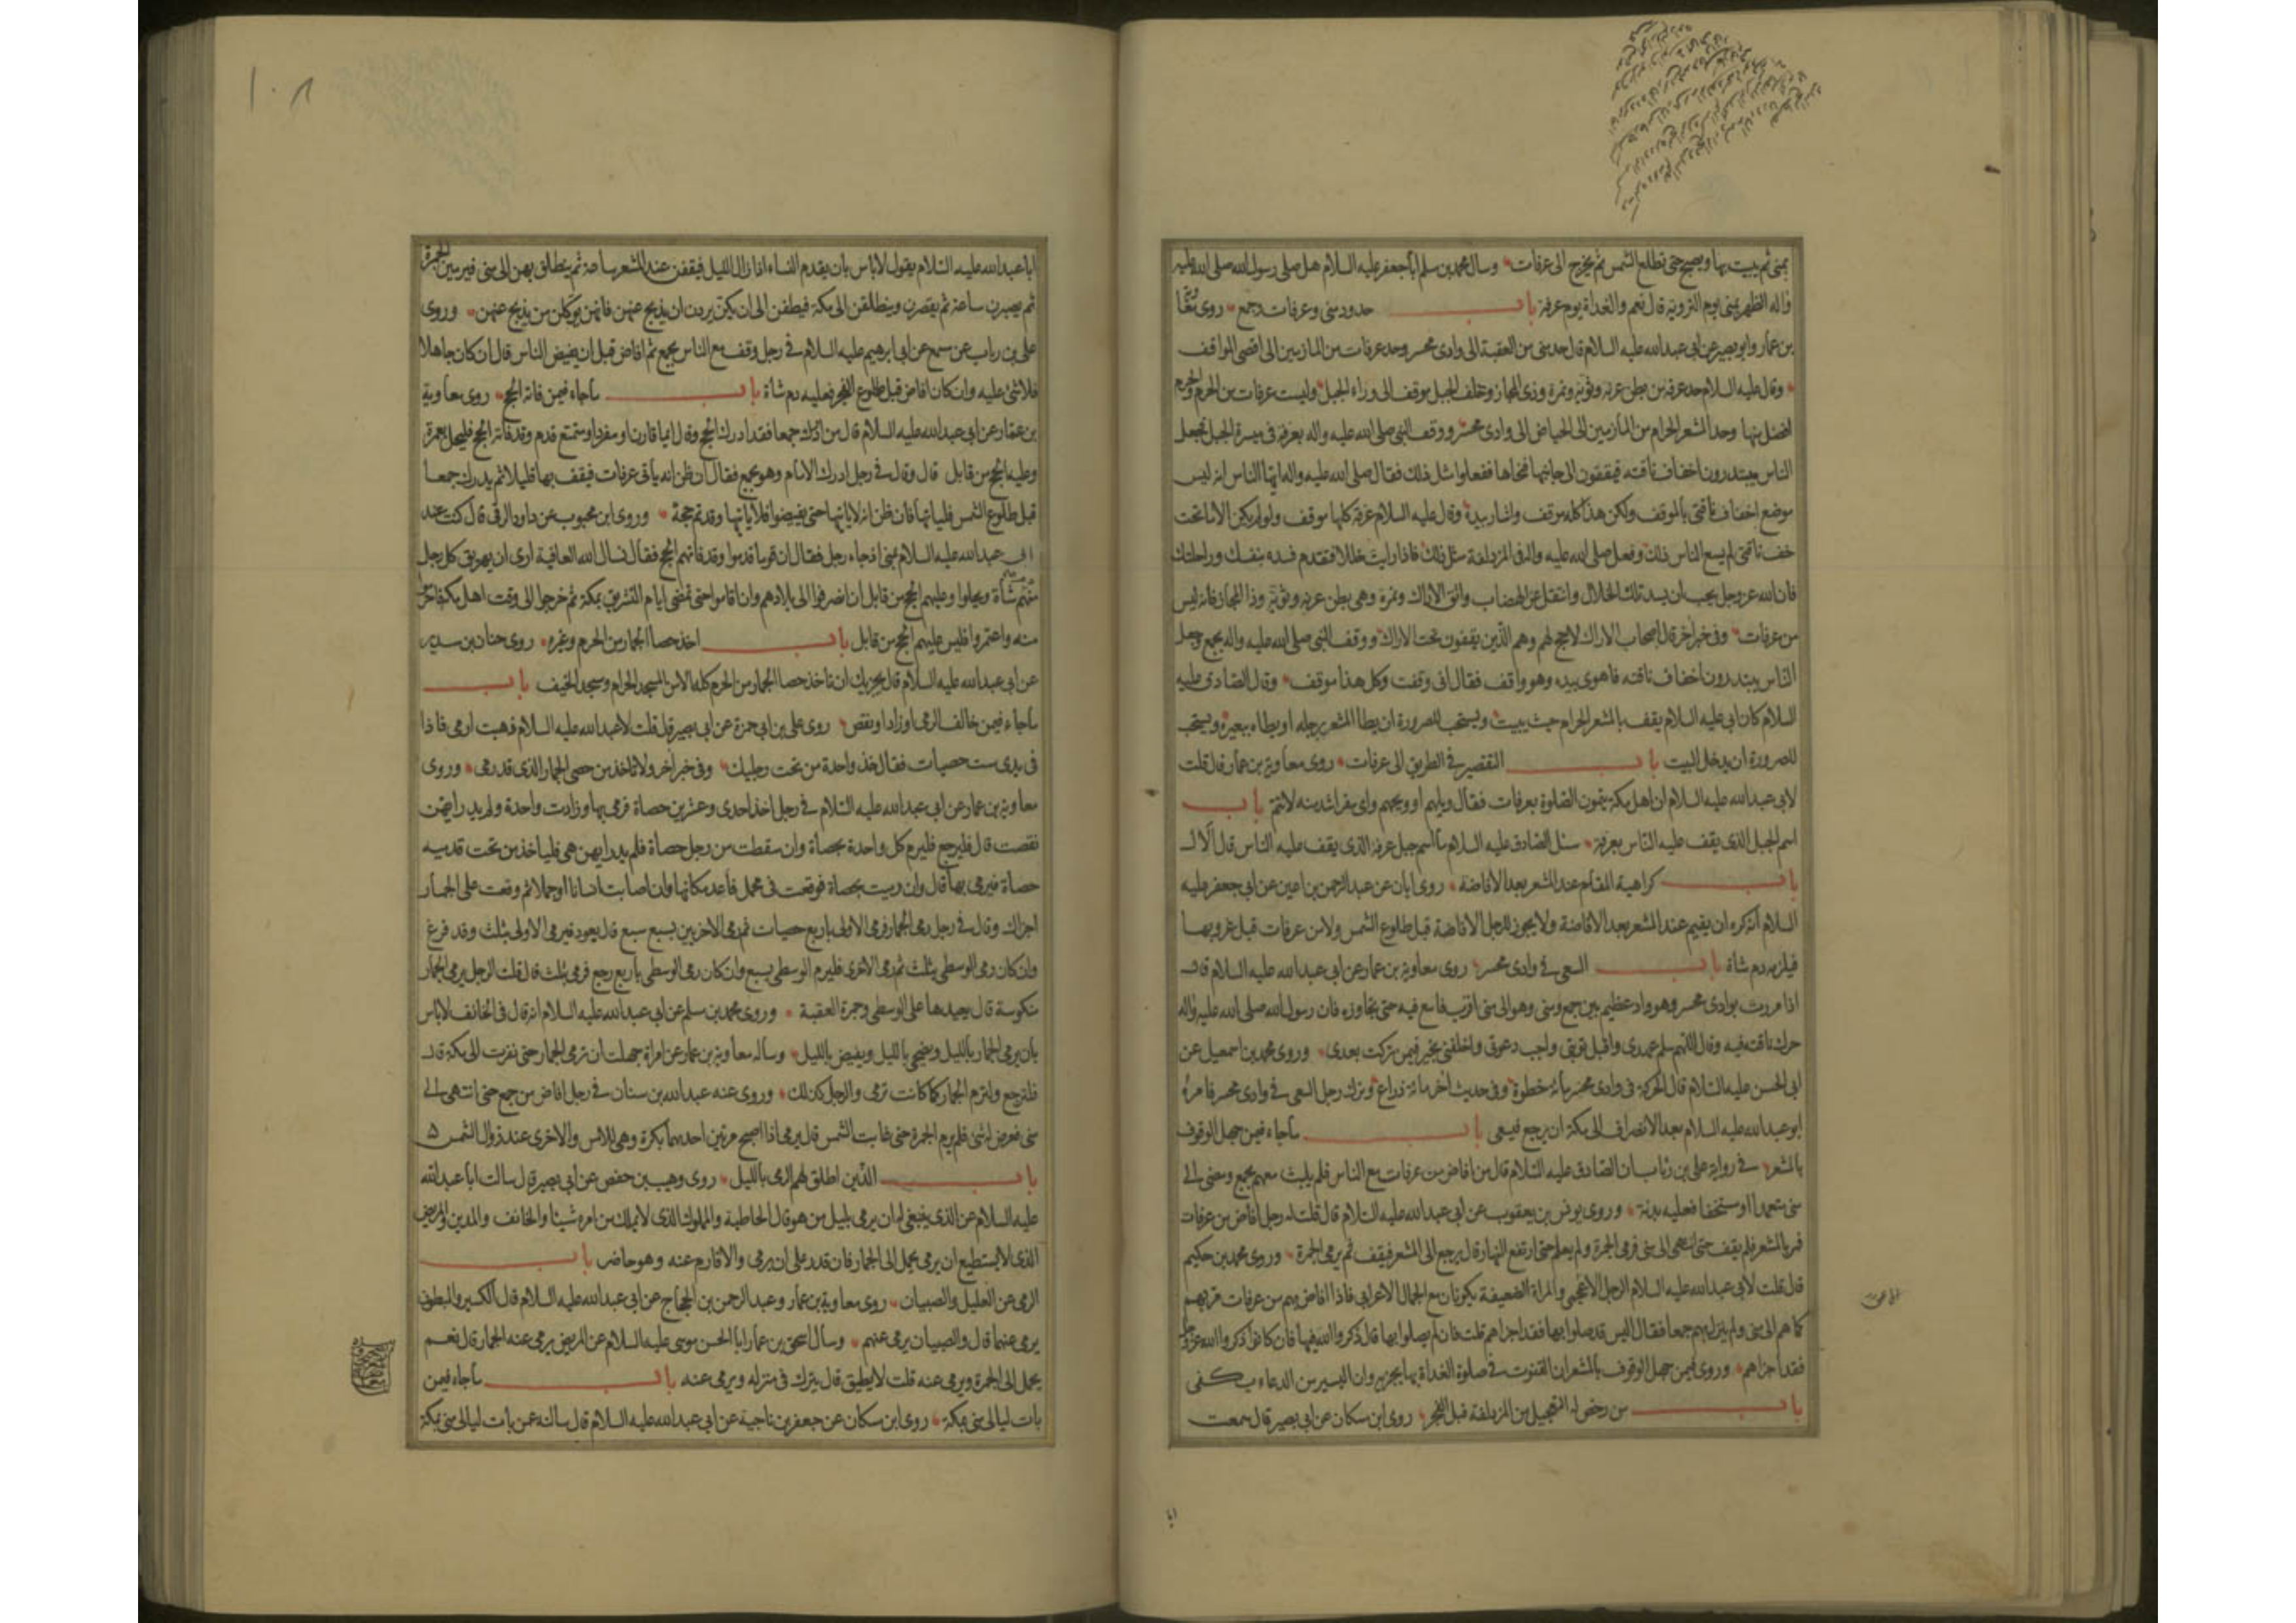 بمنى ثم يبيت بها ويصبح حتى تطلع الشمس ثم يخرج الى عرفات وسال محمد بن مسلم ابا جعفر عليه السلام هل صلى رسول الله صلى الله عليه
واله الظهر بمنى يوم التروية قال نعم والغداة يوم عرفة باب حدود منى وعرفات وجمع روى معوية
بن عمار وابو بصير عن ابى عبدالله عليه السلام قال حد منى من العقبة الى وادى محسر وحد عرفات من المازمين الى اقصى الموقف
وقال عليه السلام حد عرفة من بطن عرنة وثوية ونمرة وذى المجاز وخلف الجبل موقف الى وراء الجبل وليست عرفات من الحرم والحرم
افضل منها وحد المشعر الحرام من المازمين الى الحياض الى وادى محسر ووقف النبى صلى الله عليه واله بعرفة فى ميسرة الجبل فجعل
الناس يبتدرون اخفاف ناقته فيقفون الى جانبها فنحاها ففعلوا مثل ذلك فقال صلى الله عليه واله ايها الناس انه ليس
موضع اخفاف ناقتى بالموقف ولكن هذا كله موقف واشار بيده وقال عليه السلام عرفة كلها موقف ولو لم يكن الا ما تحت
خف ناقتى لم يسع الناس ذلك وفعل صلى الله عليه واله فى المزدلفة مثل ذلك فاذا رايت خللا فتقدم فسده بنفسك وراحلتك
فان الله عز وجل يحب ان يسد تلك الخلال وانتقل عن الهضاب واتق الاراك ونمرة وهى بطن عرنة وثوية وذا المجاز فانه ليس
من عرفات وفى خبر اخر قال اصحاب الاراك لا حج لهم وهم الذين يقفون تحت الاراك ووقف النبى صلى الله عليه واله بجمع فجعل
الناس يبتدرون اخفاف ناقته فاهوى بيده وهو واقف فقال انى وقفت وكل هذا موقف وقال الصادق عليه
السلام كان ابى عليه السلام يقف بالمشعر الحرام حيث يبيت ويستحب للصرورة ان يطا المشعر برجله او يطاه ببعيره ويستحب
للصرورة ان يدخل البيت باب التقصير فى الطريق الى عرفات روى معاوية بن عمار قال قلت
لابى عبدالله عليه السلام ان اهل مكة يتمون الصلوة بعرفات فقال ويلهم او ويحهم واى سفر اشد منه لا تتم باب
اسم الجبل الذى يقف عليه الناس بعرفة سئل الصادق عليه السلام ما اسم جبل عرفة الذى يقف عليه الناس قال الال
باب كراهية المقام عند المشعر بعد الافاضة روى ابان عن عبد الرحمن بن اعين عن ابى جعفر عليه
السلام انه كره ان يقيم عند المشعر بعد الافاضة ولا يجوز للرجل الافاضة قبل طلوع الشمس ولا من عرفات قبل غروبها
فيلزمه دم شاة باب السعى فى وادى محسر روى معاوية بن عمار عن ابى عبدالله عليه السلام قال
اذا مررت بوادى محسر وهو واد عظيم بين جمع ومنى وهو الى منى اقرب فاسع فيه حتى تجاوزه فان رسول الله صلى الله عليه واله
حرك ناقته فيه وقال اللهم سلم عهدى واقبل توبتى واجب دعوتى واخلفنى بخير فيمن تركت بعدى وروى محمد بن اسمعيل عن
ابى الحسن عليه السلام قال الحركة فى وادى محسر مائة خطوة وفى حديث اخر مائة ذراع وترك رجل السعى فى وادى محسر فامره
ابو عبدالله عليه السلام بعد الانصراف الى مكة ان يرجع فيسعى باب ما جاء فيمن جهل الوقوف
بالمشعر فى رواية على بن رئاب ان الصادق عليه السلام قال من افاض من عرفات مع الناس فلم يلبث معهم بجمع ومضى الى
منى متعمدا او مستخفا فعليه بدنة وروى يونس بن يعقوب عن ابى عبدالله عليه السلام قال قلت له رجل افاض من عرفات
فمر بالمشعر فلم يقف حتى انتهى الى منى فرمى الجمرة ولم يعلم حتى ارتفع النهار قال يرجع الى المشعر فيقف ثم يرمى الجمرة وروى محمد بن حكيم
قال قلت لابى عبدالله عليه السلام الرجل الاعجمى والمراة الضعيفة يكونان مع الجمال الاعرابى فاذا افاض بهم من عرفات مر بهم
كما هم الى منى ولم ينزل بهم جمعا فقال اليس قد صلوا بها فقد اجزاهم قلت فان لم يصلوا بها قال ذكروا الله فيها فان كانوا ذكروا الله عز وجل
فقد اجزاهم وروى فيمن جهل الوقوف بالمشعر ان القنوت فى صلوة الغداة بها يجزيه وان اليسير من الدعاء يكفى
باب من رخص له التعجيل من المزدلفة قبل الفجر روى ابن مسكان عن ابى بصير قال سمعت
١٠٨
ابا عبدالله عليه السلام يقول لا باس بان يقدم النساء اذا زال الليل فيقفن عند المشعر ساعة ثم ينطلق بهن الى منى فيرمين الجمرة
ثم يصبرن ساعة ثم يقصرن وينطلقن الى مكة فيطفن الا ان يكن يردن ان يذبح عنهن فانهن يوكلن من يذبح عنهن وروى
على بن رياب عن سمع عن ابى ابرهيم عليه السلام فى رجل وقف مع الناس بجمع ثم افاض قبل ان يفيض الناس قال ان كان جاهلا
فلا شئ عليه وان كان افاض قبل طلوع الفجر فعليه دم شاة باب ما جاء فيمن فاته الحج روى معاوية
بن عمار عن ابى عبدالله عليه السلام قال من ادرك جمعا فقد ادرك الحج وقال ايما قارن او مفرد او متمتع قدم وقد فاته الحج فليحل بعمرة
وعليه الحج من قابل قال وقال فى رجل ادرك الامام وهو بجمع فقال ان ظن انه ياتى عرفات فيقف بها قليلا ثم يدرك جمعا
قبل طلوع الشمس فلياتها فان ظن انه لا ياتيها حتى يفيضوا فلا ياتها وقد تم حجه وروى ابن محبوب عن داود الرقى قال كنت عند
ابى عبدالله عليه السلام بمنى اذ جاء رجل فقال ان قوما قدموا وقد فاتهم الحج فقال نسال الله العافية ارى ان يهريق كل رجل
منهم شاة ويحلوا وعليهم الحج من قابل ان انصرفوا الى بلادهم وان اقاموا حتى تمضى ايام التشريق بمكة ثم خرجوا الى وقت اهل مكة فاحرموا
منه واعتمروا فليس عليهم الحج من قابل باب اخذ حصا الجمار من الحرم وغيره روى حنان بن سدير
عن ابى عبدالله عليه السلام قال يجزيك ان تاخذ حصا الجمار من الحرم كله الا من المسجد الحرام ومسجد الخيف باب
ما جاء فيمن خالف الرمى او زاد او نقص روى على بن ابى حمزة عن ابى بصير قال قلت لابى عبدالله عليه السلام ذهبت ارمى فاذا
فى يدى ست حصيات فقال خذ واحدة من تحت رجليك وفى خبر اخر ولا تاخذ من حصى الجمار الذى قد رمى وروى
معاوية بن عمار عن ابى عبدالله عليه السلام فى رجل اخذ احدى وعشرين حصاة فرمى بها وزادت واحدة ولم يدر ايتهن
نقصت قال فليرجع فليرم كل واحدة بحصاة وان سقطت من رجل حصاة فلم يدر ايهن هى فلياخذ من تحت قدميه
حصاة فيرمى بها قال وان رميت بحصاة فوقعت فى محمل فاعد مكانها وان اصابت انسانا او جملا ثم وقعت على الجمار
اجزاك وقال فى رجل رمى الجمار فرمى الاولى باربع حصيات ثم رمى الاخريين بسبع سبع قال يعود فيرمى الاولى بثلث وقد فرغ
وان كان رمى الوسطى بثلث ثم رمى الاخرى فليرم الوسطى بسبع وان كان رمى الوسطى باربع رجع فرمى بثلث قال قلت الرجل يرمى الجمار
منكوسة قال يعيدها على الوسطى وجمرة العقبة وروى محمد بن مسلم عن ابى عبدالله عليه السلام انه قال فى الخائف لا باس
بان يرمى الجمار بالليل ويضحى بالليل ويفيض بالليل وساله معاوية بن عمار عن امراة جهلت ان ترمى الجمار حتى نفرت الى مكة قال
فلترجع ولترم الجمار كما كانت ترمى والرجل كذلك وروى عنه عبدالله بن سنان فى رجل افاض من جمع حتى انتهى الى
منى فعرض له شئ فلم يرم الجمرة حتى غابت الشمس قال يرمى اذا اصبح مرتين احدهما بكرة وهى للامس والاخرى عند زوال الشمس
باب الذين اطلق لهم الرمى بالليل روى وهيب بن حفص عن ابى بصير قال سالت ابا عبدالله
عليه السلام عن الذى ينبغى له ان يرمى بليل من هو قال الحاطبة والمملوك الذى لا يملك من امره شيئا والخائف والمدين والمريض
الذى لا يستطيع ان يرمى يحمل الى الجمار فان قدر على ان يرمى والا فارم عنه وهو حاضر باب
الرمى عن العليل والصبيان روى معاوية بن عمار وعبد الرحمن بن الحجاج عن ابى عبدالله عليه السلام قال الكسير والمبطون
يرمى عنهما قال والصبيان يرمى عنهم وسال اسحق بن عمار ابا الحسن موسى عليه السلام عن المريض يرمى عنه الجمار قال نعم
يحمل الى الجمرة ويرمى عنه قلت لا يطيق قال يترك فى منزله ويرمى عنه باب ما جاء فيمن
بات ليالى منى بمكة روى ابن مسكان عن جعفر بن ناجية عن ابى عبدالله عليه السلام قال سالته عمن بات ليالى منى بمكة